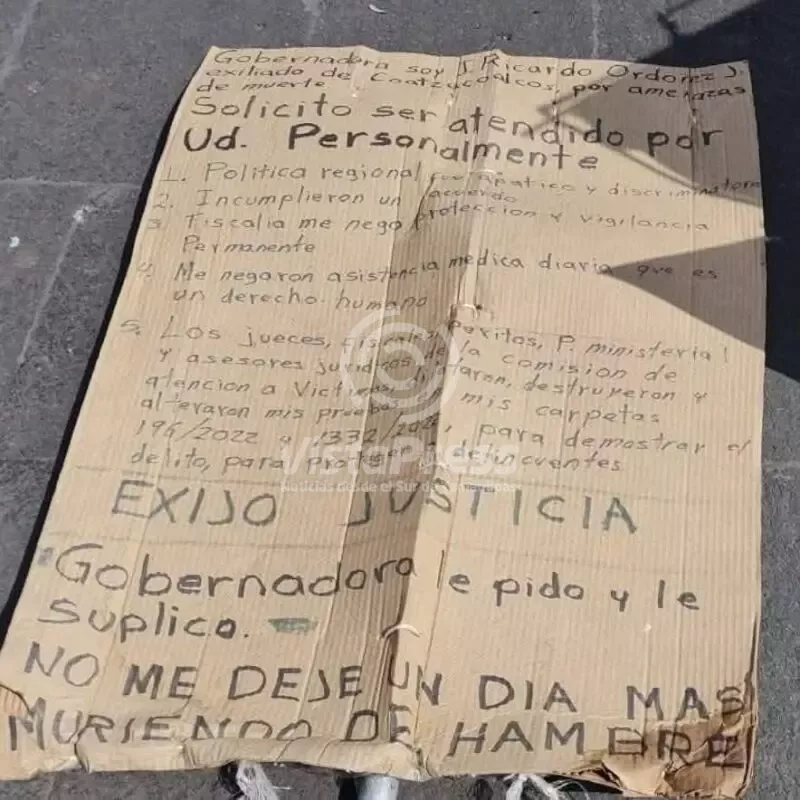 Gobernadora soy J. Ricardo Ordoñez J.
exiliado de Coatzacoalcos, por amenazas
de muerte
Solicito ser atendido por
Ud. Personalmente
1. Politica regional fue apatica y discriminatoria
2. Incumplieron un acuerdo
3. Fiscalia me nego proteccion y vigilancia
Permanente
4. Me negaron asistencia medica diaria que es
un derecho humano
5. Los jueces, fiscales, Peritos, P. ministerial
y asesores juridicos de la comision de
atencion a Victimas, destruyeron y
alteraron mis pruebas mis carpetas
196/2022 y 1332/2022, para demostrar el
delito, para proteger a delincuentes
VistaPress
Noticias desde el Sur de
EXIJO JUSTICIA
Gobernadora le pido y le
suplico.
NO ME DEJE UN DIA MAS
MURIENDO DE HAMBRE